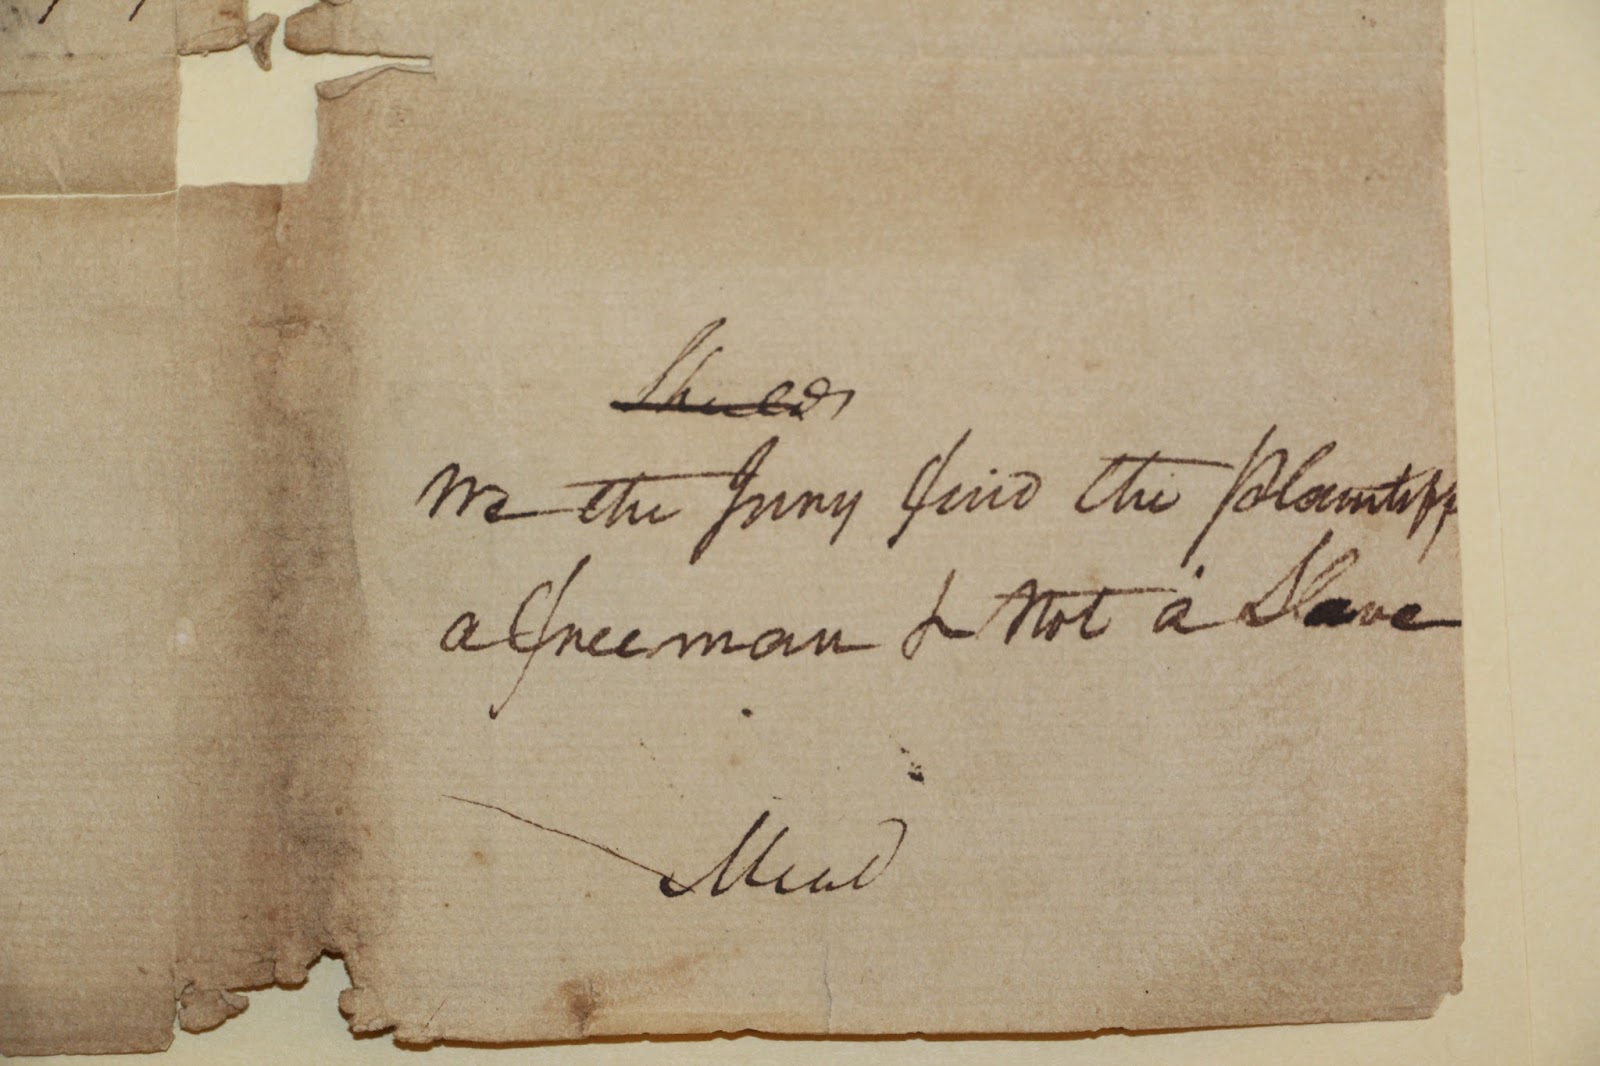 We the Jury find the Plaintiff
a freeman & Not a Slave
Mead